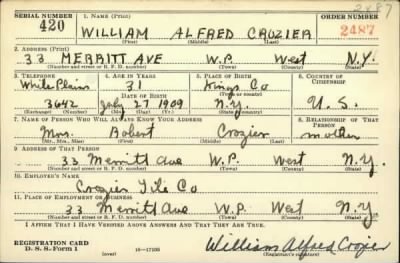 2487
SERIAL NUMBER 1. NAME (Print) ORDER NUMBER
420 WILLIAM ALFRED CROZIER 2487
(First) (Middle) (Last)
2. ADDRESS (Print)
33 MERRITT AVE W.P. West N.Y.
(Number and street or R. F. D. number) (Town) (County) (State)
3. TELEPHONE 4. AGE IN YEARS 5. PLACE OF BIRTH 6. COUNTRY OF CITIZENSHIP
White Plains 31 Kings Co
DATE OF BIRTH (Town or county)
3642 July 27 1909 N.Y. U.S.
(Exchange) (Number) (Mo.) (Day) (Yr.) (State or country)
7. NAME OF PERSON WHO WILL ALWAYS KNOW YOUR ADDRESS 8. RELATIONSHIP OF THAT PERSON
Mrs. Robert Crozier mother
(Mr., Mrs., Miss) (First) (Middle) (Last)
9. ADDRESS OF THAT PERSON
33 Merritt Ave W.P. West N.Y.
(Number and street or R. F. D. number) (Town) (County) (State)
10. EMPLOYER'S NAME
Crozier Tile Co
11. PLACE OF EMPLOYMENT OR BUSINESS
33 Merritt Ave W.P. West N.Y.
(Number and street or R. F. D. number) (Town) (County) (State)
I AFFIRM THAT I HAVE VERIFIED ABOVE ANSWERS AND THAT THEY ARE TRUE.
REGISTRATION CARD William Alfred Crozier
D. S. S. Form 1 16—17105 (over) (Registrant's signature)